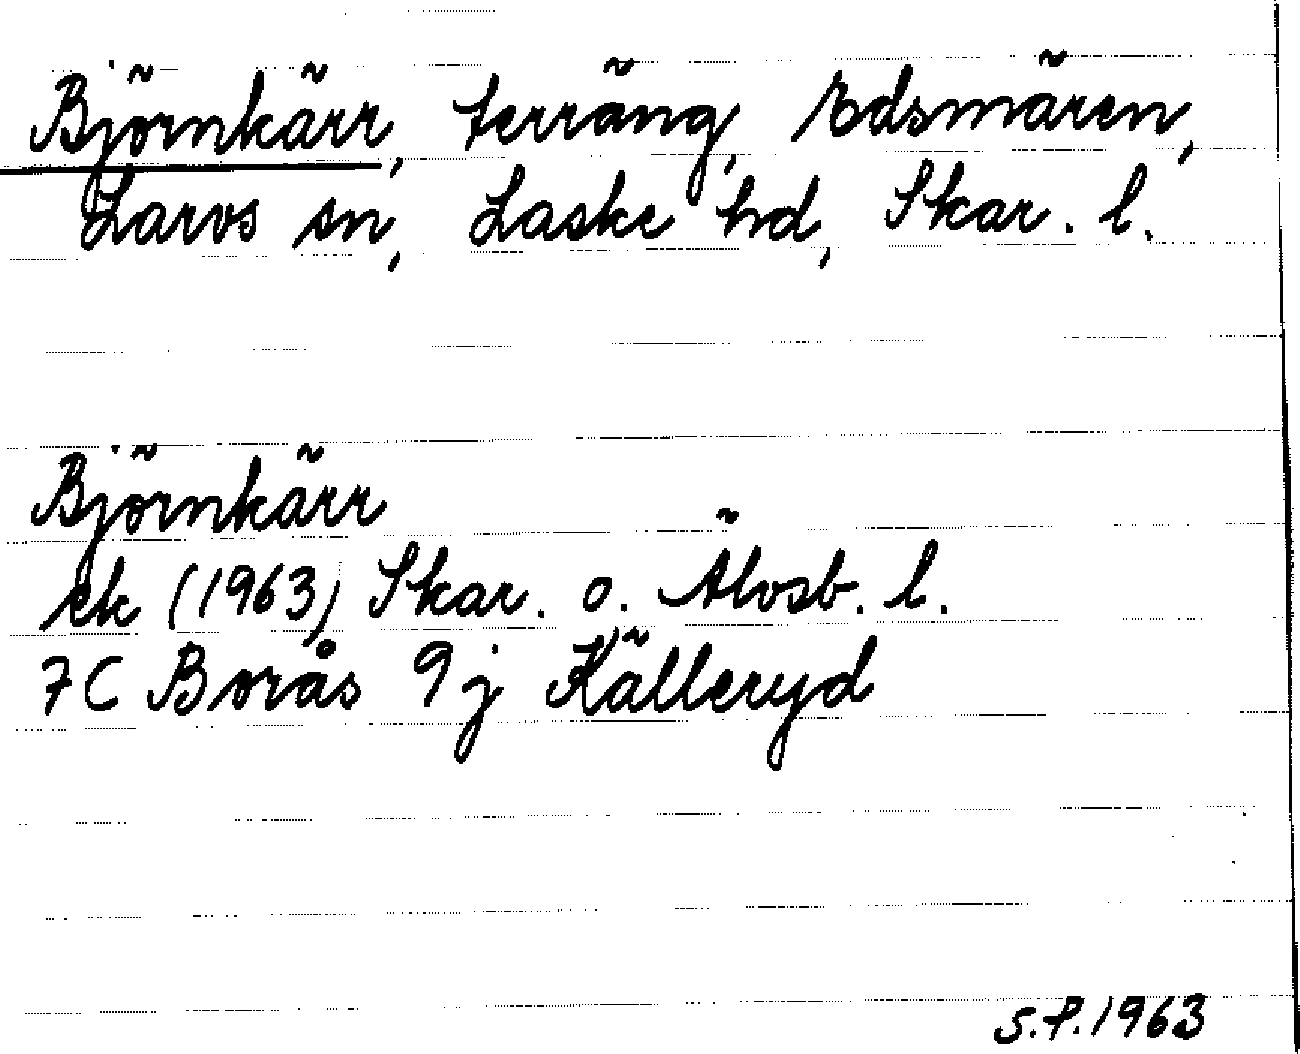 Björnkärr, terräng, Edsmären,
Larvs sn, Laske hd, Skar. l.
Björnkärr
ek (1963) Skar. o. Älvsb. l.
7C Borås 9j Källeryd
S.P. 1963